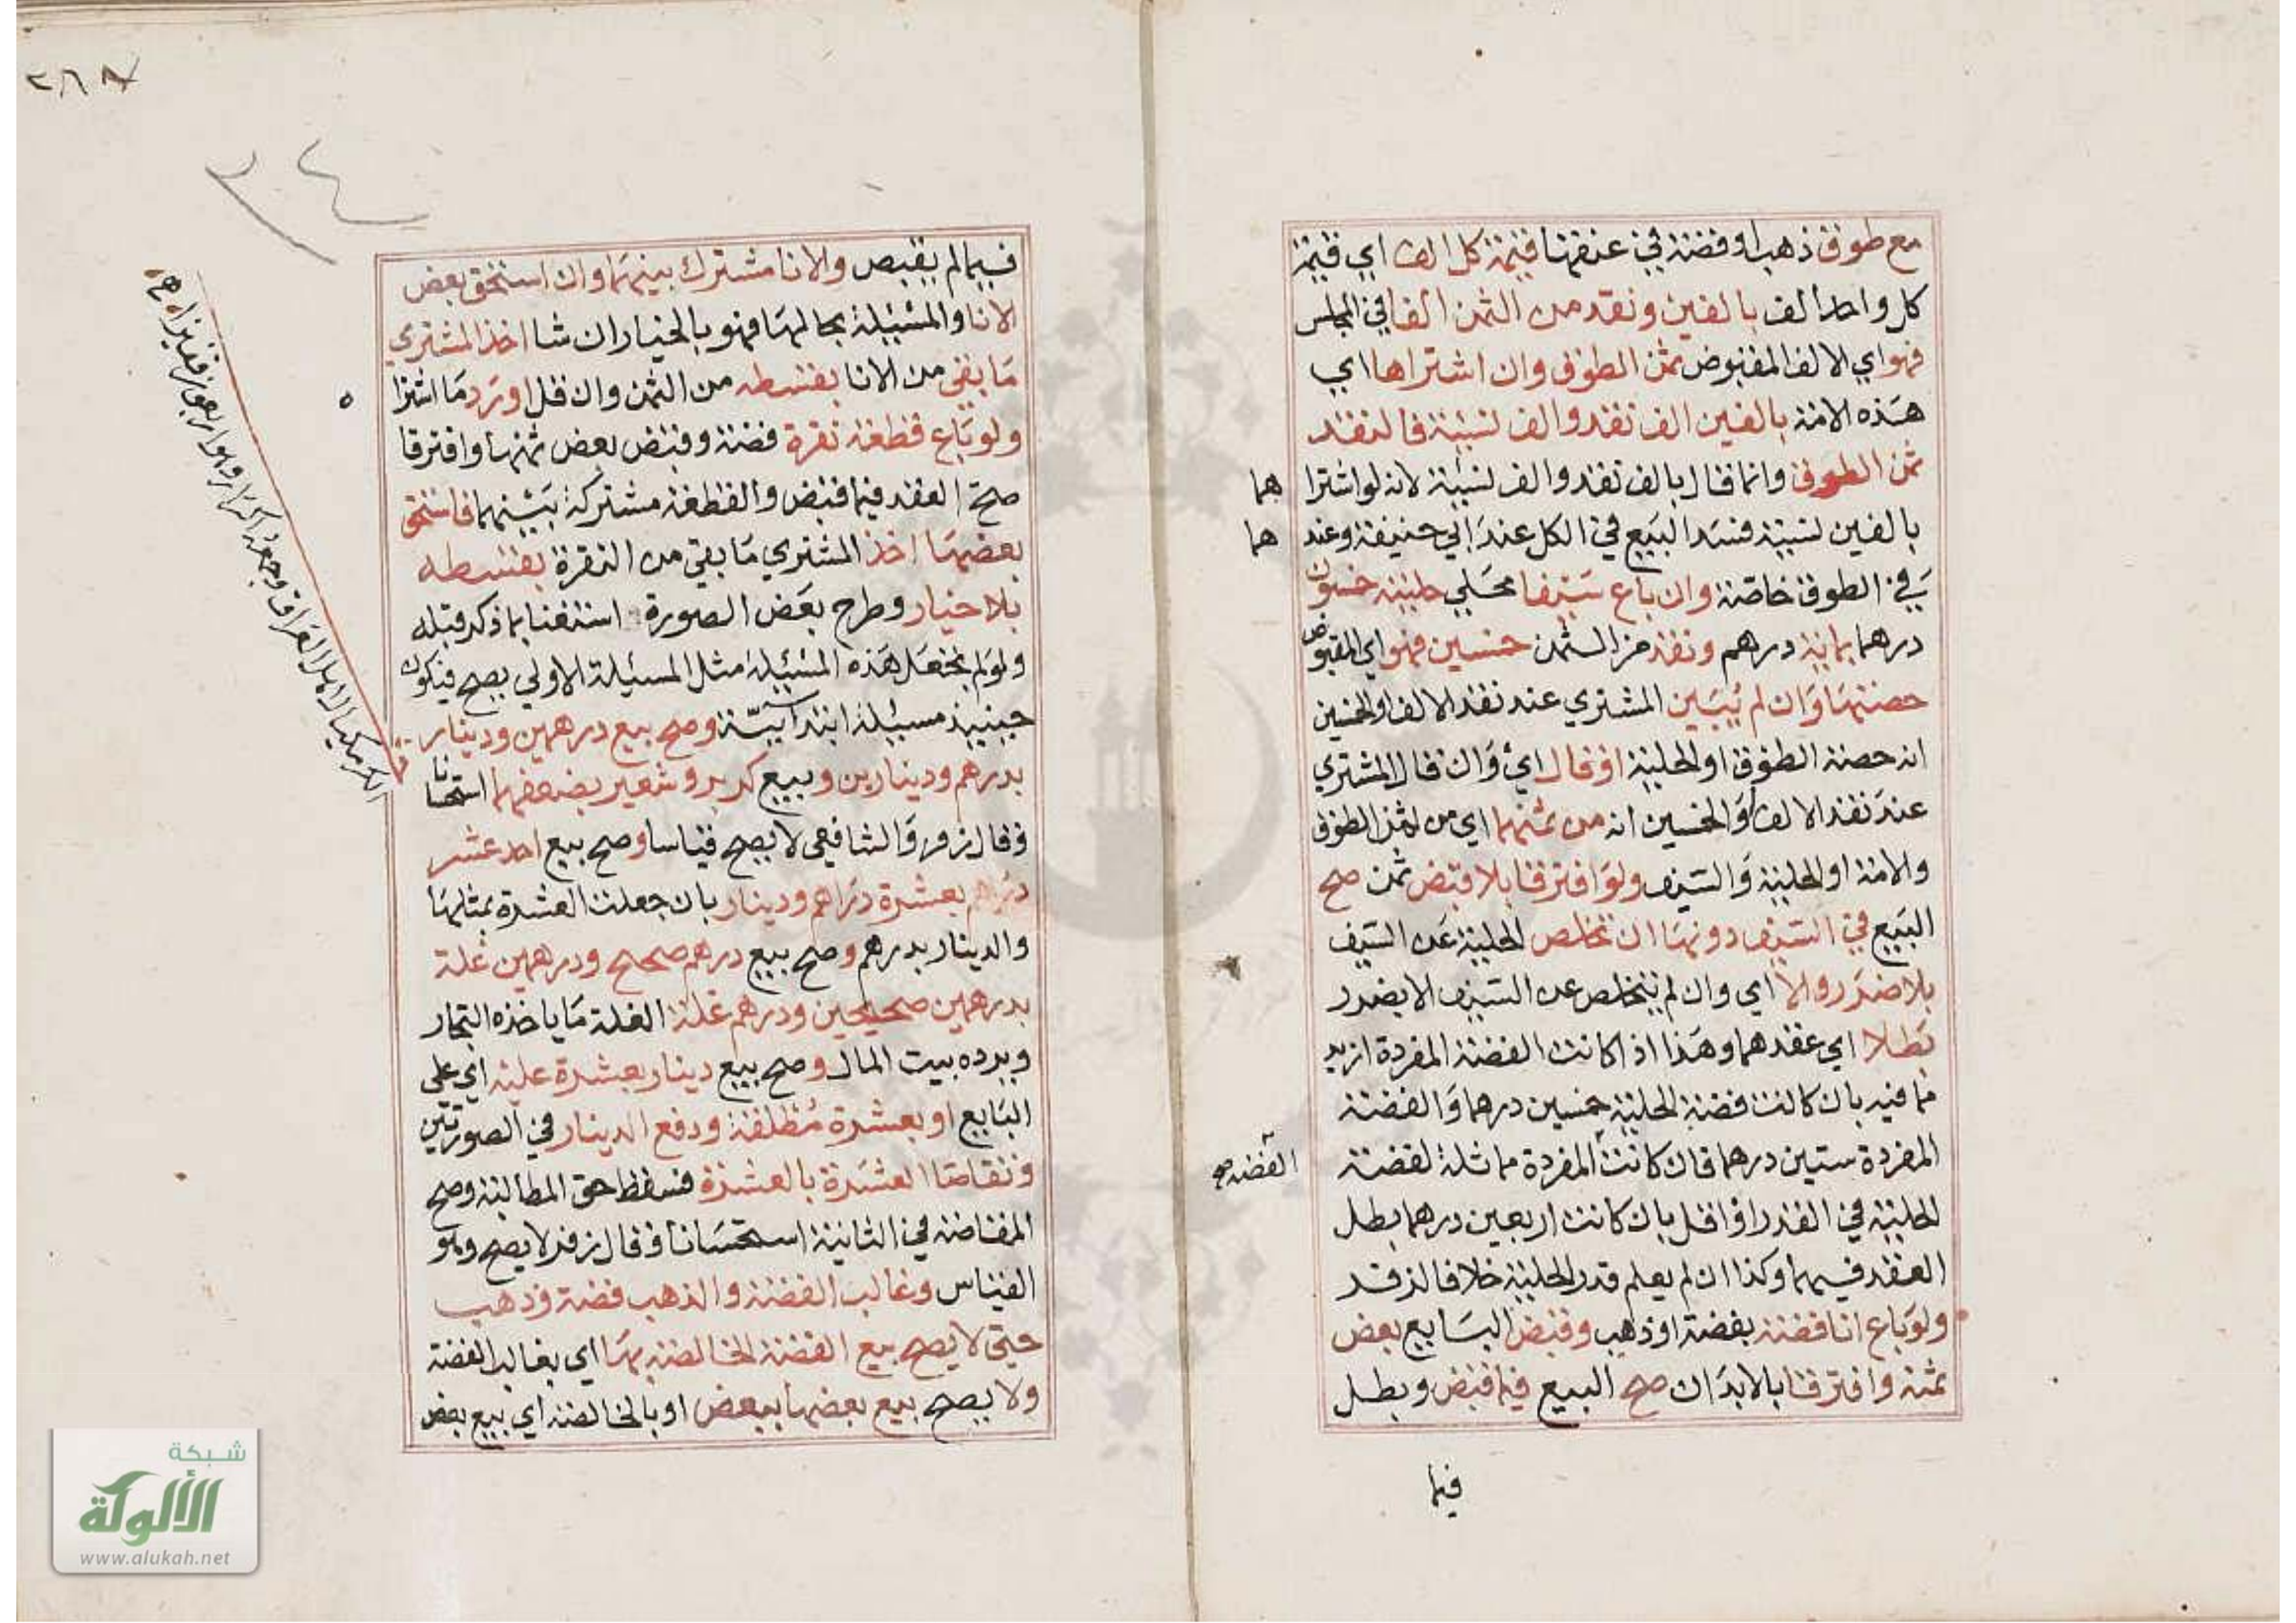 مع طوق ذهب او فضة في عنقها قيمة كل الف اي قيمة
كل واحد الف بالفين ونقد من الثمن الفا في المجلس
فهو اي الالف المقبوض ثمن الطوق وان اشتراها اي
هذه الامة بالفين الف نقد والف نسيئة فالنقد
ثمن الطوق وانما قال بالف نقد والف نسيئة لانه لو اشترا هما
بالفين نسيئة فسد البيع في الكل عند ابي حنيفة وعند هما
في الطوق خاصة وان باع سيفا محلي حليته خمسون
درهما بماية درهم ونقد من الثمن خمسين فهو اي المقبوض
حصتها وان لم يبين المشتري عند نقد الالف او الخمسين
انه حصة الطوق او الحلية او قال اي وان قال المشتري
عند نقد الالف او الخمسين انه من ثمنهما اي من ثمن الطوق
والامة او الحلية والسيف ولو افترقا بلا قبض ثمن صح
البيع في السيف دونها ان تخلص الحلية عن السيف
بلا ضرر والا اي وان لم تتخلص عن السيف الا بضرر
بطلا اي عقدهما وهذا اذا كانت الفضة المفردة ازيد
مما فيه بان كانت فضة الحلية خمسين درهما والفضة
المفردة ستين درهما فان كانت المفردة مماثلة لفضة
الفضة صح
الحلية في القدر او اقل بان كانت اربعين درهما بطل
العقد فيهما وكذا ان لم يعلم قدر الحلية خلافا لزفر
ولو باع انا فضة بفضة او ذهب وقبض البايع بعض
ثمنه وافترقا بالابدان صح البيع فيما قبض وبطل
فيما
٢٨٨
٣٤
فيما لم يقبض والانا مشترك بينهما وان استحق بعض
الانا والمسئيلة بحالها فهو بالخيار ان شا اخذ المشتري
ما بقي من الانا بقسطه من الثمن وان قل او رد ما اشترا
ولو باع قطعة نقرة فضة وقبض بعض ثمنها وافترقا
صح العقد فيما قبض والقطعة مشتركة بينهما فاستحق
بعضها اخذ المشتري ما بقي من النقرة بقسطه
بلا خيار وطرح بعض الصورة استغنا بما ذكر قبله
ولو لم تجعل هذه المسئيلة مثل المسئيلة الاولي يصح فيكون
حينيذ مسئيلة ابتدائية وصح بيع درهمين ودينار
بدرهم ودينارين وبيع كر بر وشعير بضعفهما استحسانا
وقال زفر والشافعي لا يصح قياسا وصح بيع احد عشر
درهم بعشرة دراهم ودينار بان جعلت العشرة بمثلها
والدينار بدرهم وصح بيع درهم صحيح ودرهمين غلة
بدرهمين صحيحين ودرهم غلة الغلة ما ياخذه التجار
ويرده بيت المال وصح بيع دينار بعشرة عليه اي علي
البايع او بعشرة مطلقة ودفع الدينار في الصورتين
وتقاصا العشرة بالعشرة فسقط حق المطالبة وصح
المقاصة في الثانية استحسانا وقال زفر لا يصح وهو
القياس وغالب الفضة والذهب فضة وذهب
حتي لا يصح بيع الفضة الخالصة بها اي بغالب الفضة
ولا يصح بيع بعضها ببعض او بالخالصة اي بيع بعض
شبكة
الألوكة
www.alukah.net